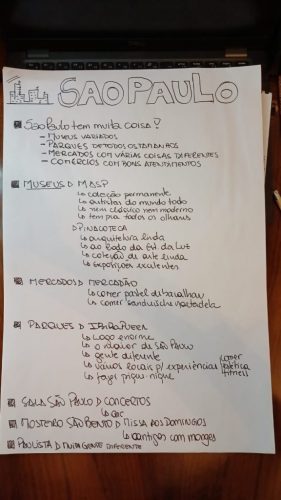 SAO PAULO
São Paulo tem muita coisa!
- MUSEUS VARIADOS
- PARQUES DE TODOS OS TAMANHOS
- MERCADOS COM VÁRIAS COISAS DIFERENTES
- COMÉRCIOS COM BONS ATENDIMENTOS
MUSEUS D MASP
↳ coleção permanente
↳ artistas do mundo todo
↳ nem clássico nem moderno
↳ tem pra todos os olhares
D PINACOTECA
↳ arquitetura linda
↳ ao lado da Est da Luz
↳ coleção de arte linda
↳ exposições excelentes
MERCADOS D MERCADÃO
↳ comer pastel de bacalhau
↳ comer sanduíche mortadela
PARQUES D IBIRAPUERA
↳ LAGO enorme
↳ o maior de São Paulo
↳ gente diferente
↳ vários locais p/ experiências
comer
estética
fitness
↳ fazer pique-nique
SALA SÃO PAULO D CONCERTOS
↳
MOSTEIRO SÃO BENTO D MISSA AOS DOMINGOS
↳ cantigas com monges
PAULISTA D MUITA GENTE DIFERENTE